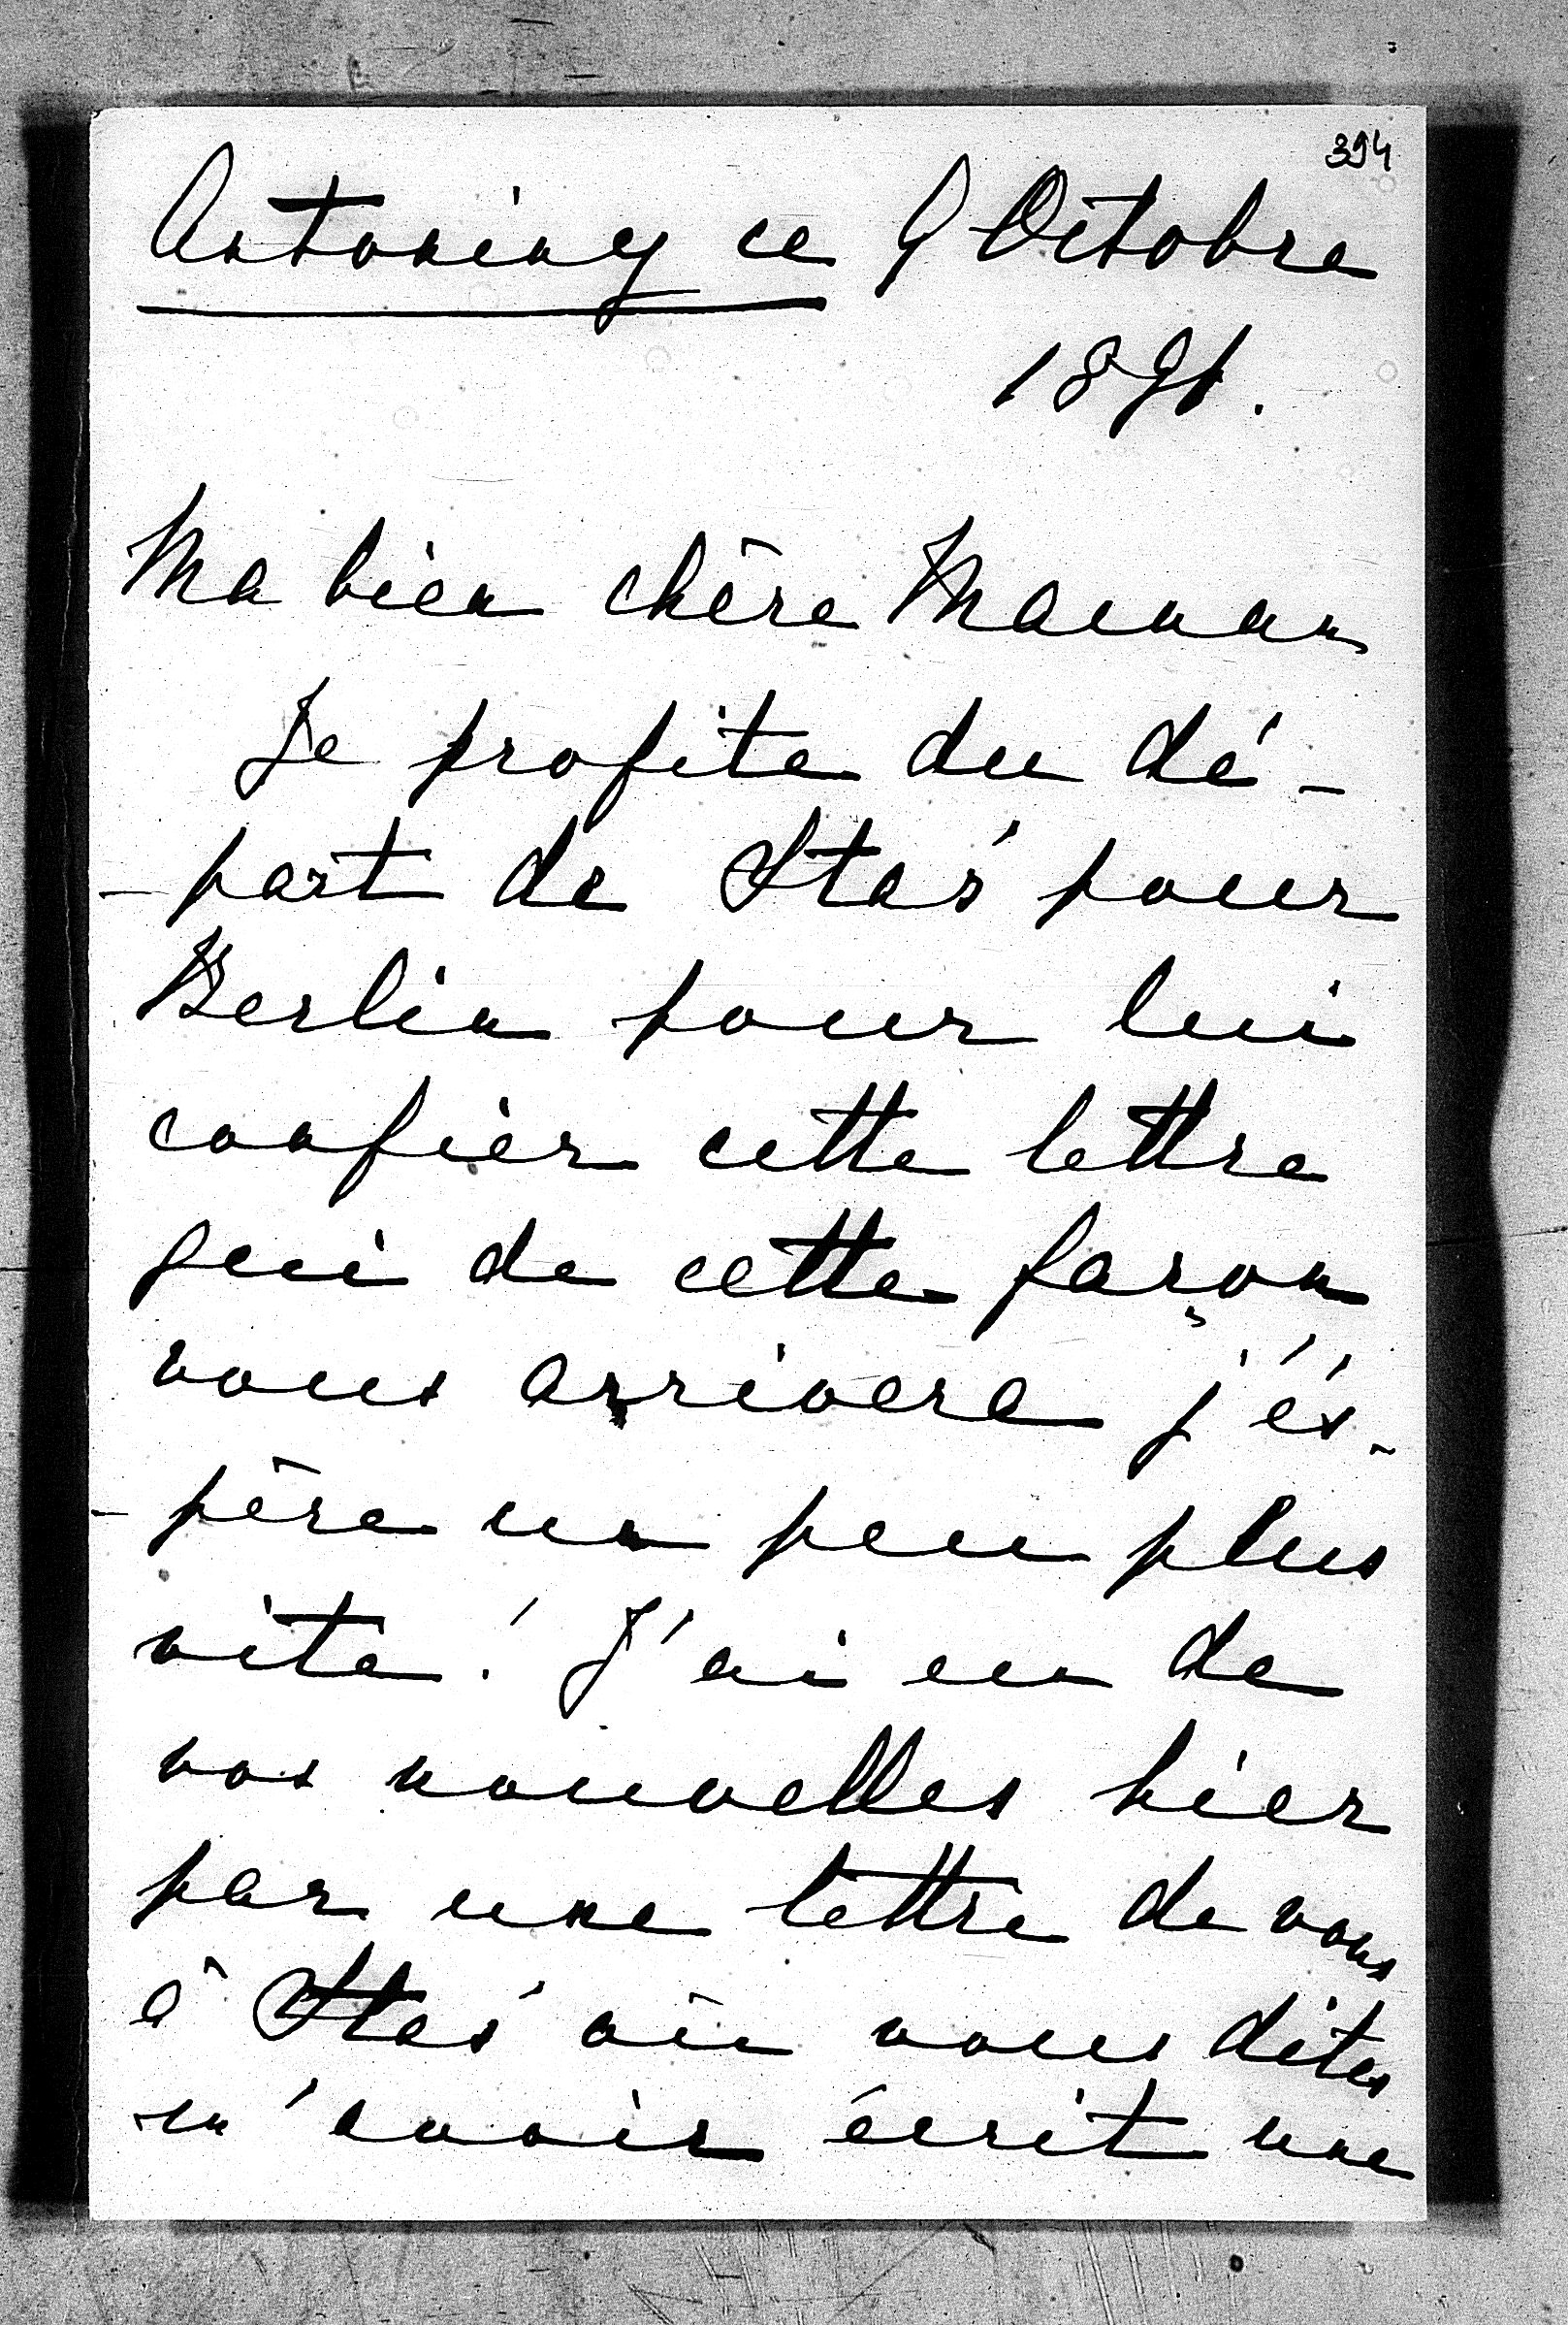 394
Antoniny ce 9 Octobre
1891.
Ma bien chère Maman
Je profite du dé-
-part de Staś pour
Berlin pour lui
confier cette lettre
qui de cette façon
vous arrivera j'és-
-père un peu plus
vite! J'ai eu de
vos nouvelles hier
par une lettre de vous
à Staś où vous dites
m'avoir écrit une